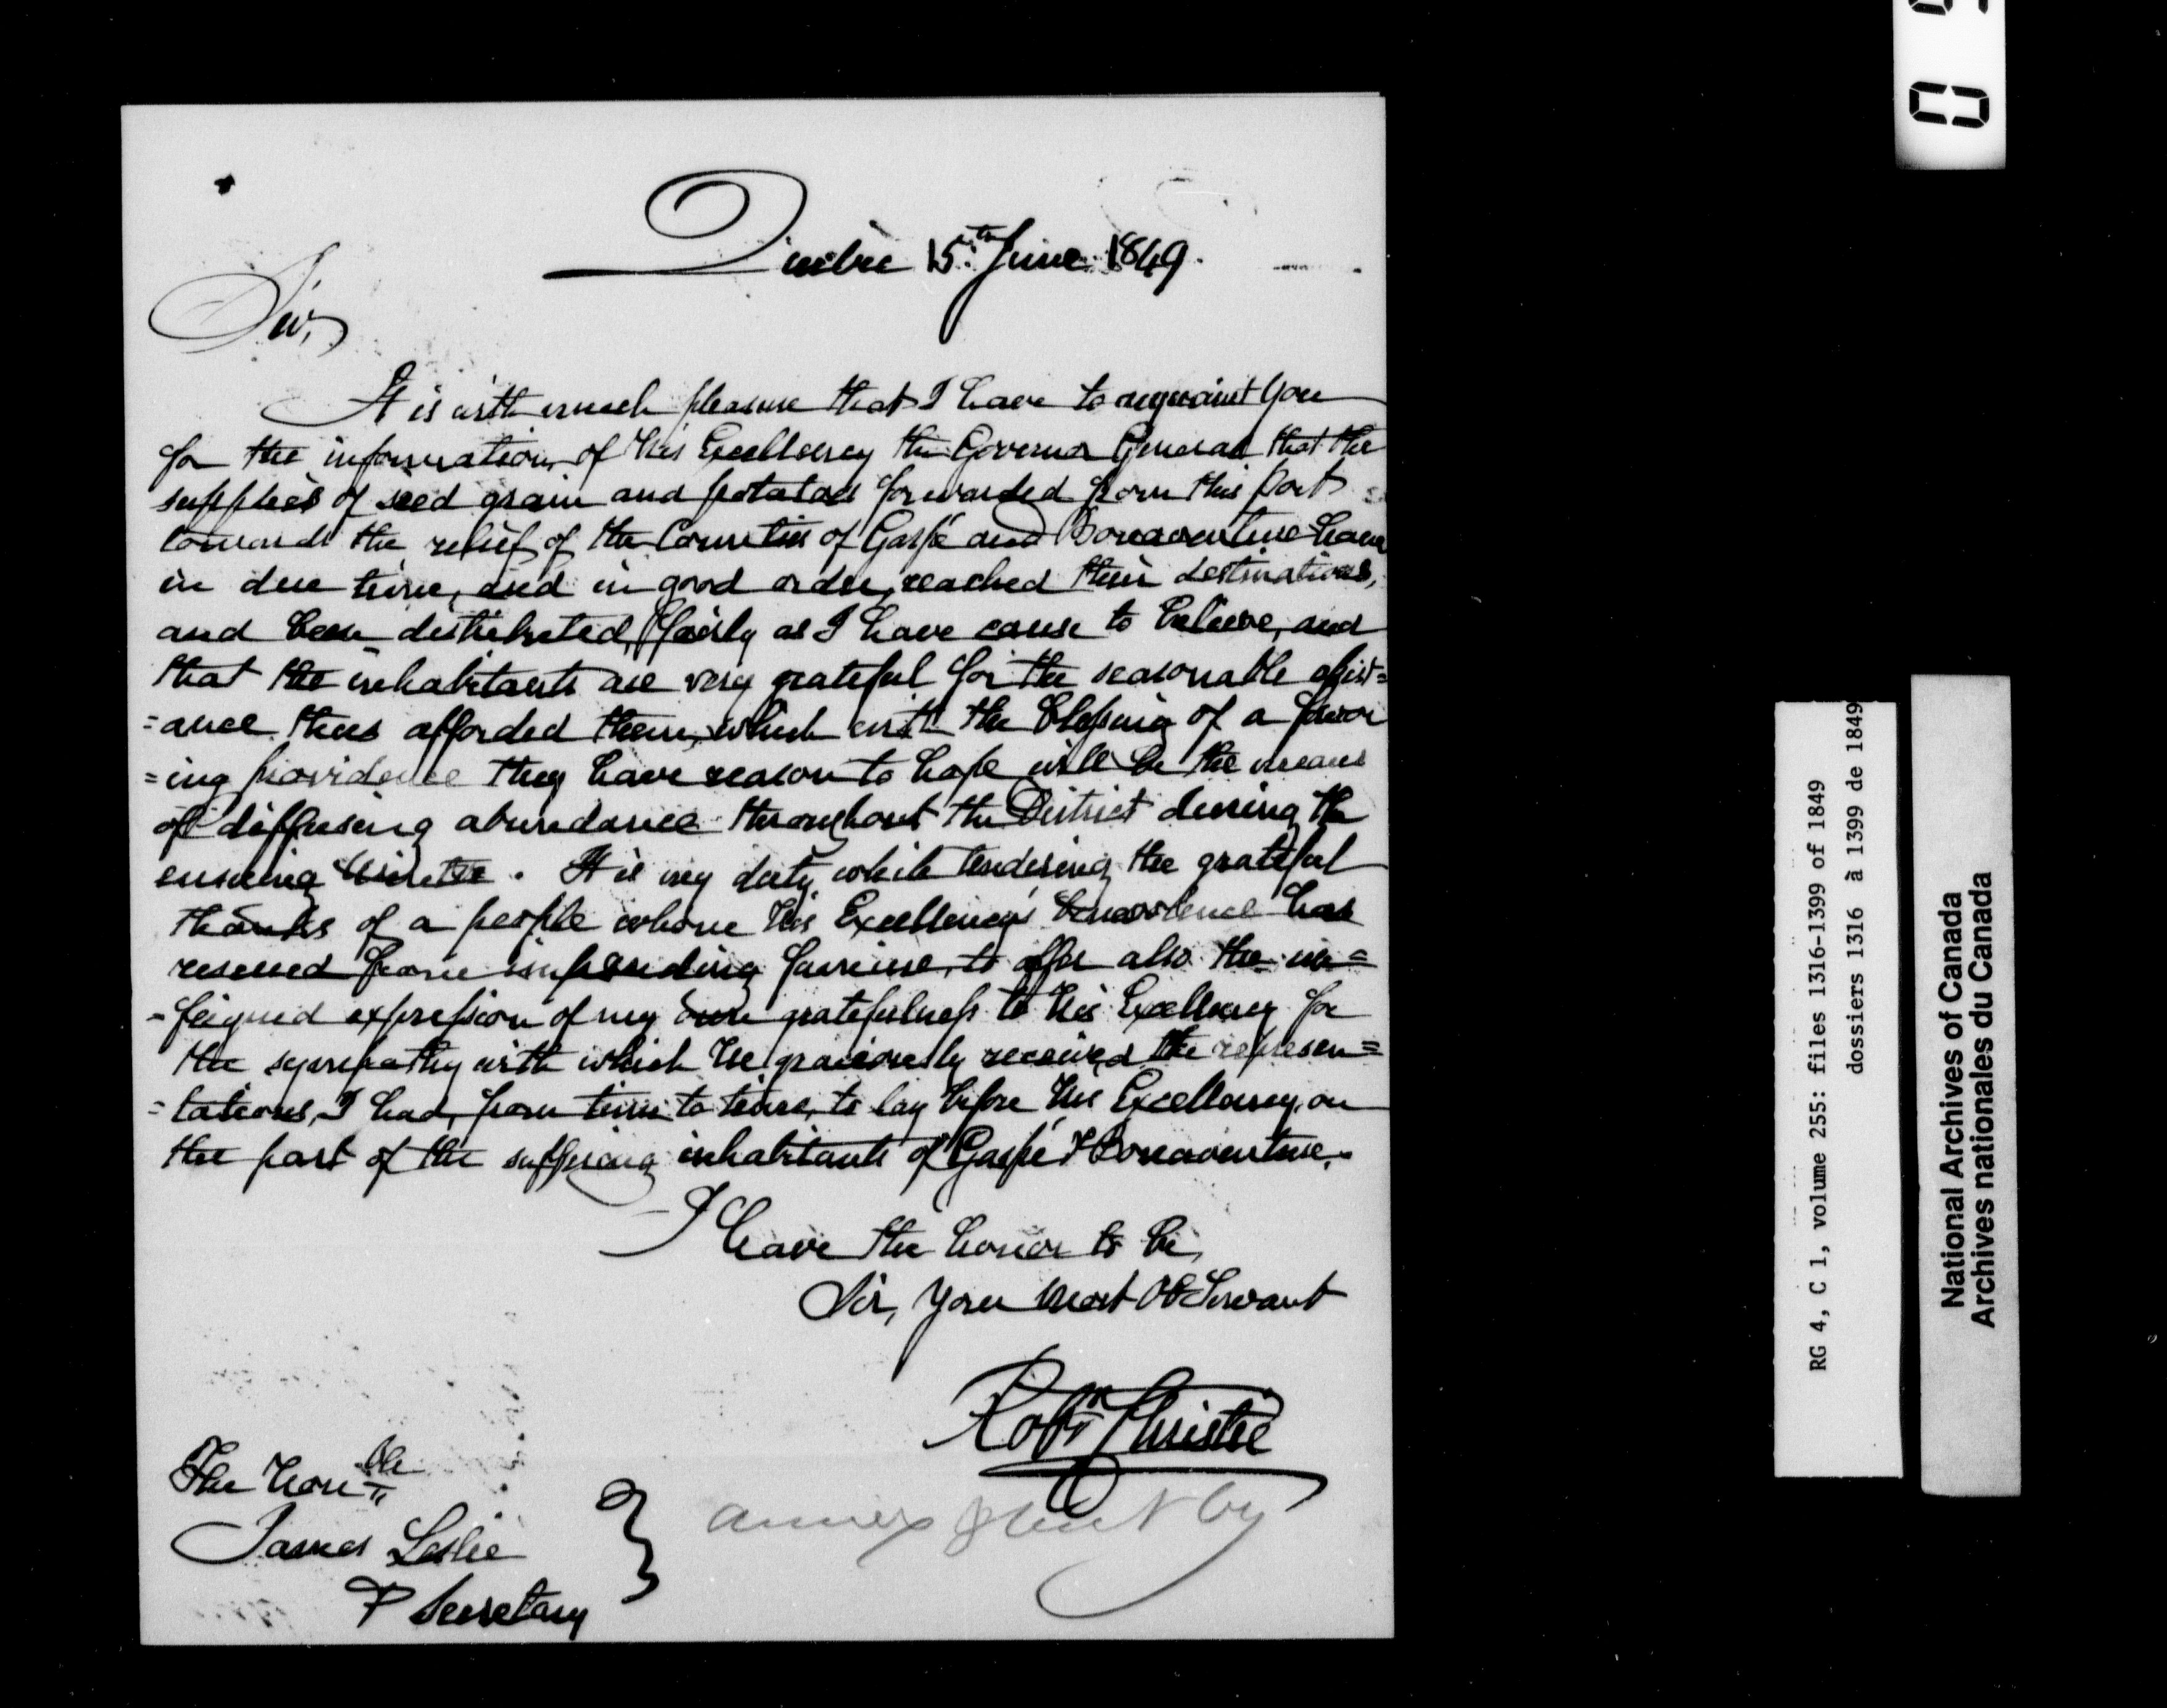 Quebec 15th June 1849.
Sir,
It is with much pleasure that I have to acquaint you
for the information of His Excellency the Governor General that the
supplies of seed grain and potatoes forwarded from this Port
towards the relief of the Counties of Gaspé and Bonaventure have
in due time, and in good order, reached their destinations,
and been distributed, fairly as I have cause to believe, and
that the inhabitants are very grateful for the seasonable assist=
=ance thus afforded them, which with the blessing of a favor
=ing providence they have reason to hope will be the means
of diffusing abundance throughout the District during the
ensuing Winter. It is my duty, while tendering the grateful
thanks of a people whom His Excellency's benevolence has
rescued from impending famine, to offer also the un=
=feigned expression of my own gratefulness to His Excellency for
the sympathy with which he graciously received the represen=
=tations, I had, from time to time, to lay before His Excellency, on
the part of the suffering inhabitants of Gaspé & Bonaventure.
I have the honor to be,
Sir, your most Ob Servant
Robt Christie
The Honble
James Leslie
P Secretary
annex by
0
RG 4, C 1, volume 255: files 1316-1399 of 1849
dossiers 1316 à 1399 de 1849
National Archives of Canada
Archives nationales du Canada